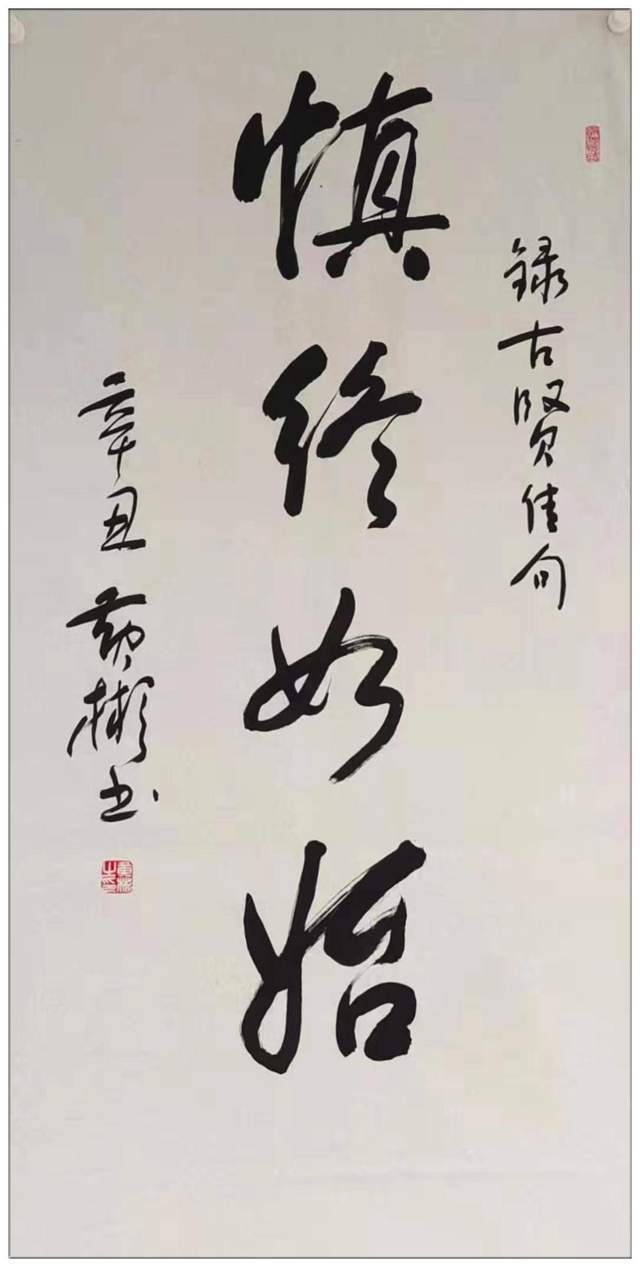 录古贤佳句
慎终如始
辛丑黄彬书